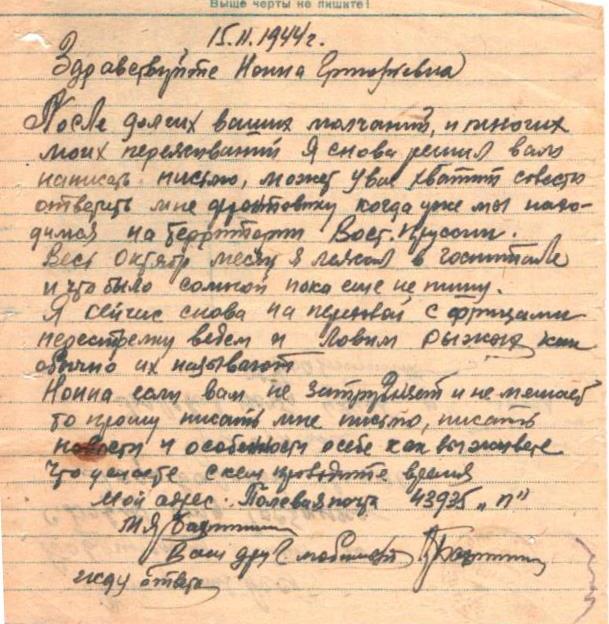 Выше черты не пишите!
15.11.1944 г.
Здравствуйте Нонна
После долгих ваших молчаний, и многих
моих переживаний я снова решил вам
написать письмо, может у вас хватит совести
ответить мне фронтовику когда уже мы нахо-
димся на территории Вост. Пруссии.
Весь Октябр месяц я лежал в госпитале
и что было сомной пока еще не пишу.
Я сейчас снова на передовой с фрицами
перестрелку ведем и ловим рыжих как
обычно их называют
Нонна если вам не затруднит и не мешает
то прошу писать мне письмо, писать
новости и особенности осебе как вы живете
Что делаете с кем проводите время
Мой адрес. Полевая почта 43935 „п"
М Я
Ваш друг
жду ответа